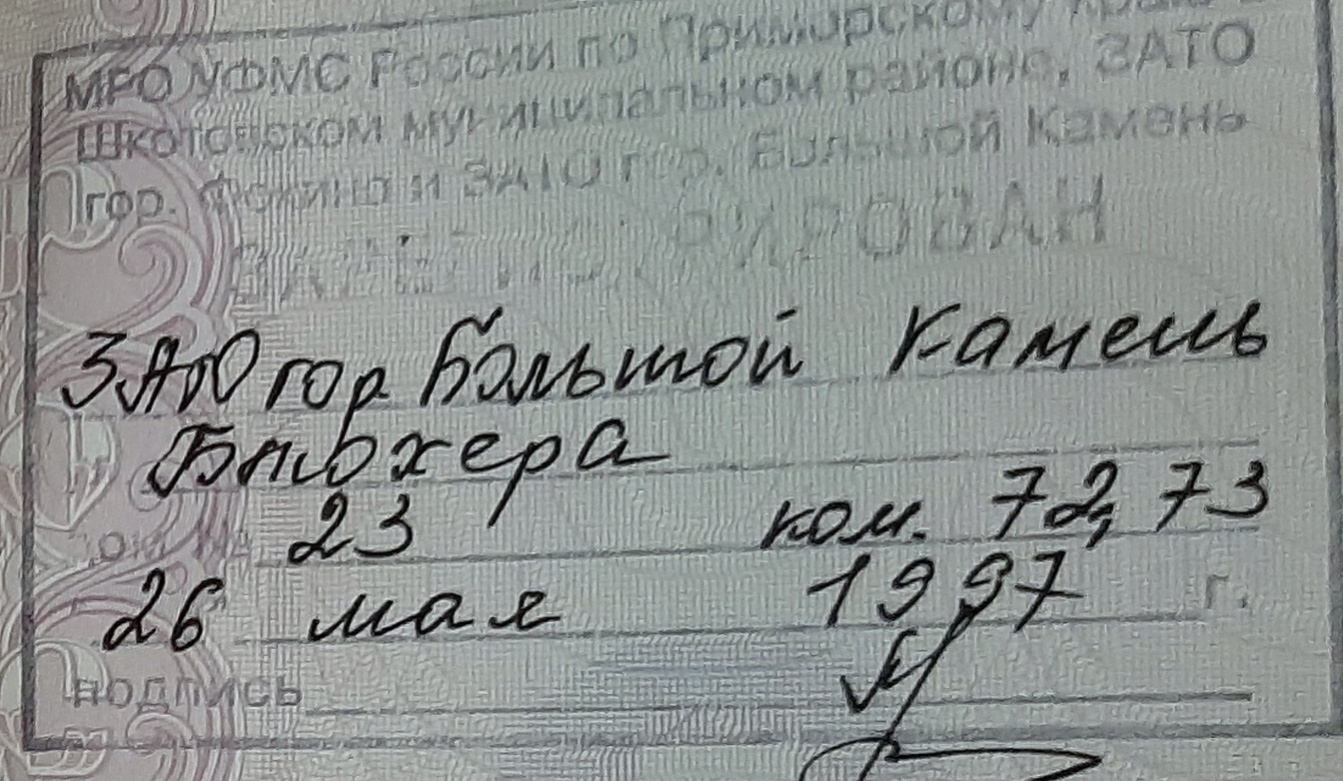 МРО УФМС России по Приморскому краю в
Шкотовском муниципальном районе, ЗАТО
гор. Фокино и ЗАТО гор. Большой Камень
ЗАРЕГИСТРИРОВАН
ЗАТО гор. Большой Камень
Блюхера
дом № 23 ком. 72, 73
26 мая 1997 г.
подпись